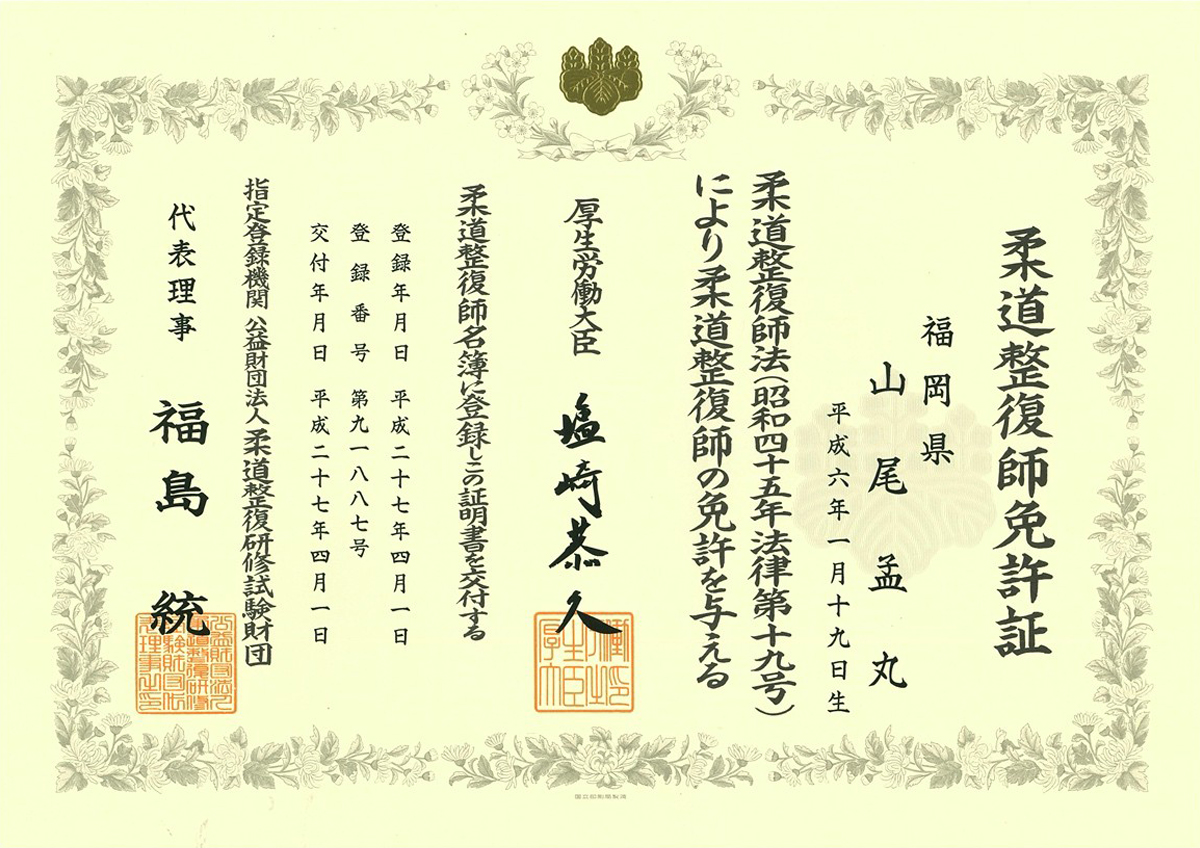 柔道整復師免許証
福岡県
山尾孟丸
平成六年一月十九日生
柔道整復師法(昭和四十五年法律第十九号)
により柔道整復師の免許を与える
厚生労働大臣 塩崎恭久
柔道整復師名簿に登録しこの証明書を交付する
登録年月日 平成二十七年四月一日
登録番号 第九一八八七号
交付年月日 平成二十七年四月一日
指定登録機関 公益財団法人柔道整復研修試験財団
代表理事 福島統